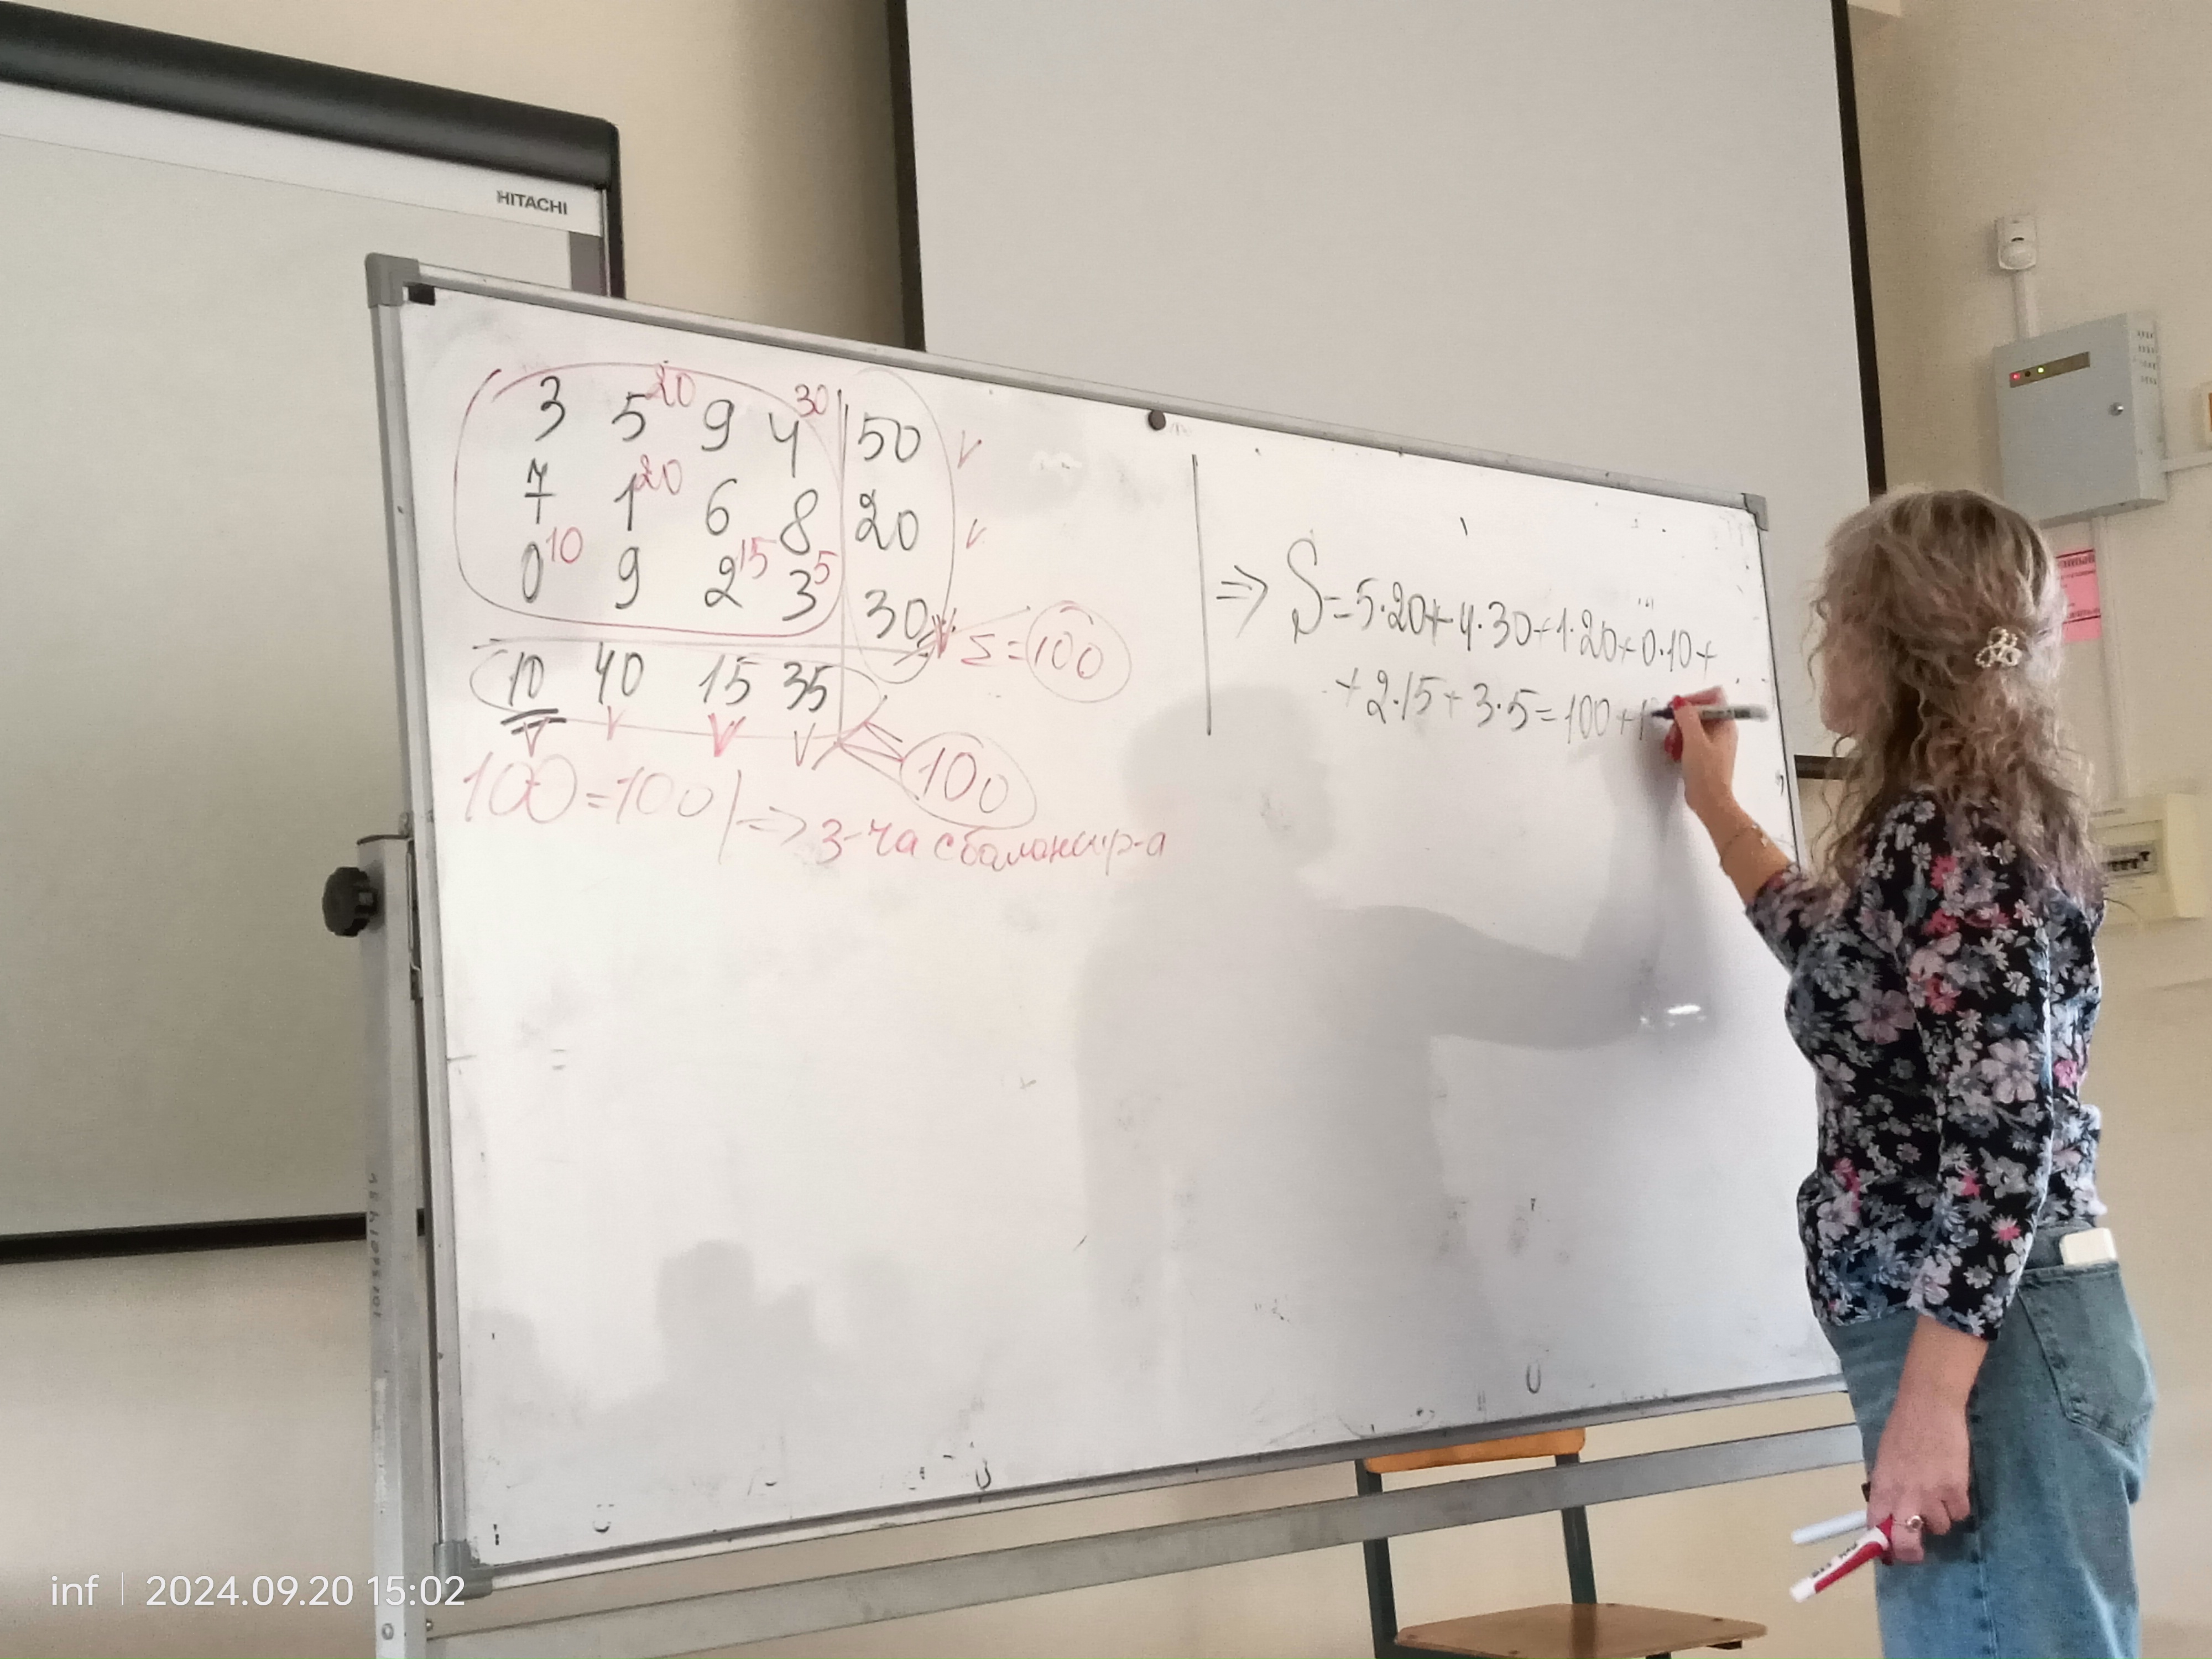 HITACHI
3 5 20 9 4 30 50 V
7 1 20 6 8 20 V
0 10 9 2 15 3 5 30 V Σ = 100
10 40 15 35
V V V V
100
100 = 100 | ⇒ З-ча сбалансир-а
⇒ S = 5·20 + 4·30 + 1·20 + 0·10 +
+ 2·15 + 3·5 = 100 + 1
inf | 2024.09.20 15:02